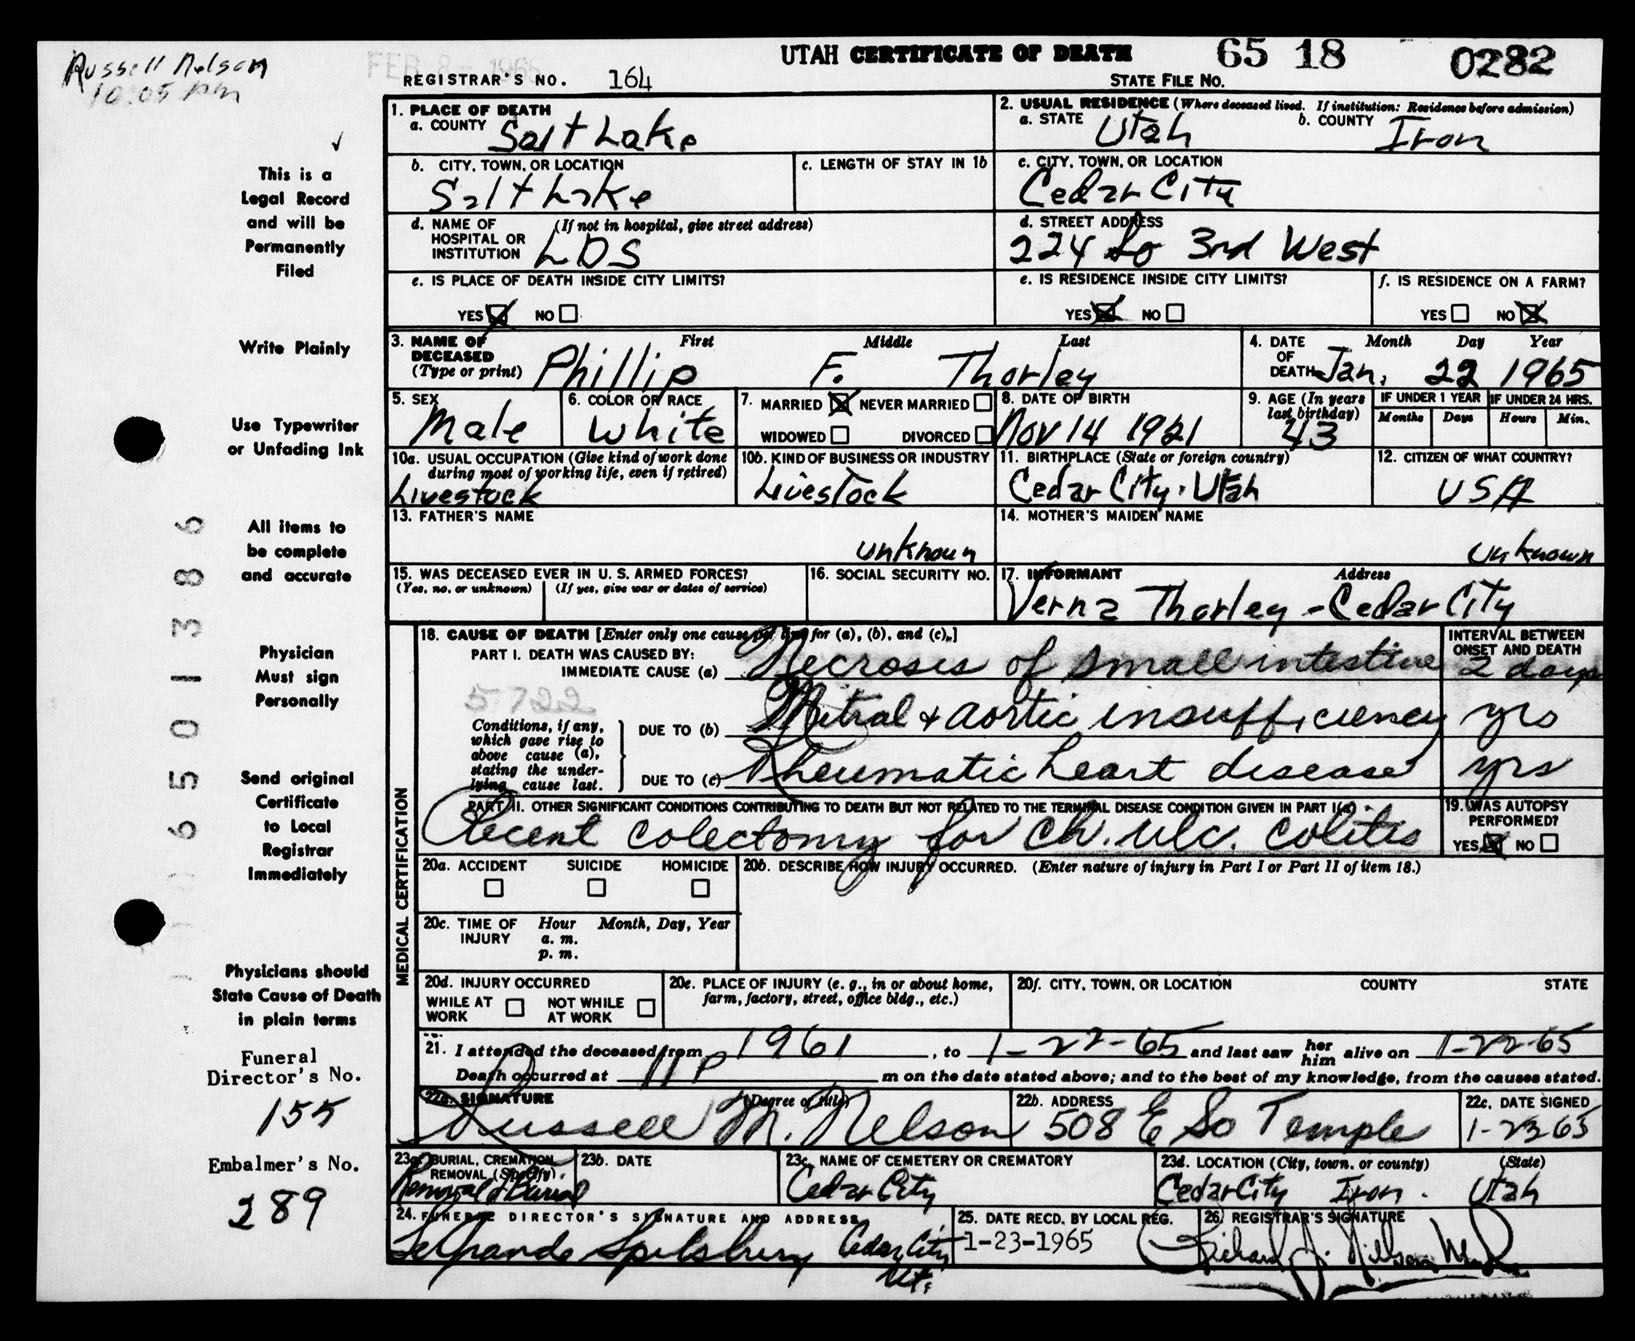 Russell Nelson
10:05 PM
FEB 8 - 1965
UTAH CERTIFICATE OF DEATH 65 18 0282
REGISTRAR'S NO. 164 STATE FILE NO.
This is a
Legal Record
and will be
Permanently
Filed
Write Plainly
Use Typewriter
or Unfading Ink
All items to
be complete
and accurate
Physician
Must sign
Personally
Send original
Certificate
to Local
Registrar
Immediately
Physicians should
State Cause of Death
in plain terms
Funeral
Director's No.
155
Embalmer's No.
289
1. PLACE OF DEATH
a. COUNTY Salt Lake
2. USUAL RESIDENCE (Where deceased lived. If institution: Residence before admission)
a. STATE Utah b. COUNTY Iron
b. CITY, TOWN, OR LOCATION Salt Lake
c. LENGTH OF STAY IN 1b
c. CITY, TOWN, OR LOCATION Cedar City
d. NAME OF HOSPITAL OR INSTITUTION (If not in hospital, give street address) LDS
d. STREET ADDRESS 224 So 3rd West
e. IS PLACE OF DEATH INSIDE CITY LIMITS?
YES NO
e. IS RESIDENCE INSIDE CITY LIMITS?
YES NO
f. IS RESIDENCE ON A FARM?
YES NO
3. NAME OF DECEASED (Type or print) First Middle Last
Phillip F. Thorley
4. DATE OF DEATH Month Day Year
Jan. 22 1965
5. SEX Male
6. COLOR OR RACE White
7. MARRIED NEVER MARRIED
WIDOWED DIVORCED
8. DATE OF BIRTH Nov 14 1921
9. AGE (In years last birthday) 43
IF UNDER 1 YEAR Months Days
IF UNDER 24 HRS. Hours Min.
10a. USUAL OCCUPATION (Give kind of work done during most of working life, even if retired)
Livestock
10b. KIND OF BUSINESS OR INDUSTRY
Livestock
11. BIRTHPLACE (State or foreign country)
Cedar City, Utah
12. CITIZEN OF WHAT COUNTRY?
USA
13. FATHER'S NAME
unknown
14. MOTHER'S MAIDEN NAME
unknown
15. WAS DECEASED EVER IN U. S. ARMED FORCES?
(Yes, no, or unknown) (If yes, give war or dates of service)
16. SOCIAL SECURITY NO.
17. INFORMANT Address
Verna Thorley - Cedar City
MEDICAL CERTIFICATION
18. CAUSE OF DEATH [Enter only one cause per line for (a), (b), and (c).]
INTERVAL BETWEEN ONSET AND DEATH
PART I. DEATH WAS CAUSED BY:
IMMEDIATE CAUSE (a) Necrosis of small intestine 2 days
5722
Conditions, if any, which gave rise to above cause (a), stating the underlying cause last.
DUE TO (b) Mitral + aortic insufficiency yrs
DUE TO (c) Rheumatic heart disease yrs
PART II. OTHER SIGNIFICANT CONDITIONS CONTRIBUTING TO DEATH BUT NOT RELATED TO THE TERMINAL DISEASE CONDITION GIVEN IN PART I(a)
Recent colectomy for ch. ulc. colitis
19. WAS AUTOPSY PERFORMED?
YES NO
20a. ACCIDENT SUICIDE HOMICIDE
20b. DESCRIBE HOW INJURY OCCURRED. (Enter nature of injury in Part I or Part II of item 18.)
20c. TIME OF INJURY Hour Month, Day, Year
a. m.
p. m.
20d. INJURY OCCURRED
WHILE AT WORK NOT WHILE AT WORK
20e. PLACE OF INJURY (e. g., in or about home, farm, factory, street, office bldg., etc.)
20f. CITY, TOWN, OR LOCATION COUNTY STATE
21. I attended the deceased from 1961, to 1-22-65 and last saw her him alive on 1-22-65
Death occurred at 11 P m on the date stated above; and to the best of my knowledge, from the causes stated.
22a. SIGNATURE (Degree or title)
Russell M. Nelson
22b. ADDRESS
508 E So Temple
22c. DATE SIGNED
1-23 65
23a. BURIAL, CREMATION REMOVAL (Specify)
Removal & Burial
23b. DATE
23c. NAME OF CEMETERY OR CREMATORY
Cedar City
23d. LOCATION (City, town, or county) (State)
Cedar City Iron. Utah
24. FUNERAL DIRECTOR'S SIGNATURE AND ADDRESS
LeGrande Spilsbury Cedar City
Ut.
25. DATE RECD. BY LOCAL REG.
1-23-1965
26. REGISTRAR'S SIGNATURE
Richard